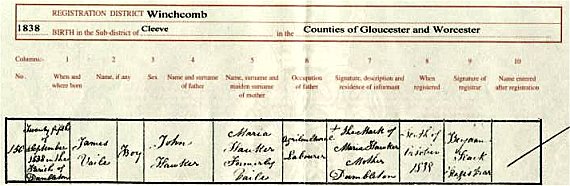 REGISTRATION DISTRICT Winchcomb
1838 BIRTH in the Sub-district of Cleeve in the Counties of Gloucester and Worcester
Columns:- 1 2 3 4 5 6 7 8 9 10
No. When and where born Name, if any Sex Name and surname of father Name, surname and maiden surname of mother Occupation of father Signature, description and residence of informant When registered Signature of registrar Name entered after registration
Twenty fifth
of
September
1838 in the
Parish of
Dumbleton
James
Vaile
Boy
John
Hawker
Maria
Hawker
Formerly
Vaile
Labourer
The Mark of
Maria Hawker
Mother
Dumbleton
of
October
1838
Registrar